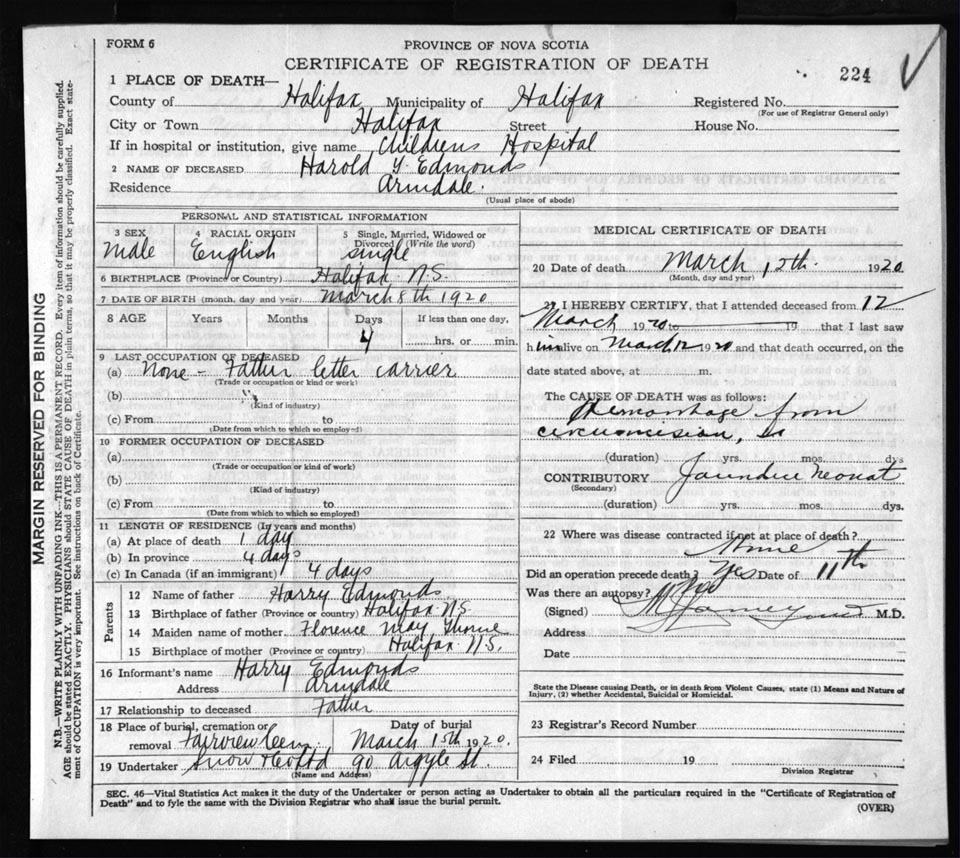 FORM 6
PROVINCE OF NOVA SCOTIA
CERTIFICATE OF REGISTRATION OF DEATH
224
1 PLACE OF DEATH—
County of Halifax Municipality of Halifax Registered No.
(For use of Registrar General only)
City or Town Halifax Street House No.
If in hospital or institution, give name Childrens Hospital
2 NAME OF DECEASED Harold Y. Edmonds
Residence Armdale.
(Usual place of abode)
MARGIN RESERVED FOR BINDING
N.B.—WRITE PLAINLY WITH UNFADING INK—THIS IS A PERMANENT RECORD. Every item of information should be carefully supplied.
AGE should be stated EXACTLY. PHYSICIANS should STATE CAUSE OF DEATH in plain terms, so that it may be properly classified. Exact state-
ment of OCCUPATION is very important. See instructions on back of Certificate.
PERSONAL AND STATISTICAL INFORMATION
3 SEX
Male
4 RACIAL ORIGIN
English
5 Single, Married, Widowed or
Divorced (Write the word)
single
6 BIRTHPLACE (Province or Country) Halifax N.S.
7 DATE OF BIRTH (month, day and year) March 8th 1920
8 AGE Years Months Days If less than one day,
4 hrs. or min.
9 LAST OCCUPATION OF DECEASED
(a) None - Father letter carrier
(Trade or occupation or kind of work)
(b)
(Kind of industry)
(c) From to
(Date from which to which so employed)
10 FORMER OCCUPATION OF DECEASED
(a)
(Trade or occupation or kind of work)
(b)
(Kind of industry)
(c) From to
(Date from which to which so employed)
11 LENGTH OF RESIDENCE (In years and months)
(a) At place of death 1 day
(b) In province 4 days
(c) In Canada (if an immigrant) 4 days
Parents
12 Name of father Harry Edmonds
13 Birthplace of father (Province or country) Halifax N.S.
14 Maiden name of mother Florence May
15 Birthplace of mother (Province or country) Halifax N.S.
16 Informant's name Harry Edmonds
Address Armdale
17 Relationship to deceased Father
18 Place of burial, cremation or
removal Fairview Cem.
Date of burial
March 15th 1920.
19 Undertaker Snow & Co Ltd 90 Argyle St.
(Name and Address)
MEDICAL CERTIFICATE OF DEATH
20 Date of death March 12th. 1920
(Month, day and year)
21 I HEREBY CERTIFY, that I attended deceased from 12
March 1920 to 19 that I last saw
h im alive on March 12 1920 and that death occurred, on the
date stated above, at m.
The CAUSE OF DEATH was as follows:
Hemorrhage from
circumcision,
(duration) yrs. mos. dys
CONTRIBUTORY Jaundice Neonat
(Secondary)
(duration) yrs. mos. dys.
22 Where was disease contracted if not at place of death?
Home
Did an operation precede death? Yes Date of 11th
Was there an autopsy? No
(Signed) M.D.
Address
Date
State the Disease causing Death, or in death from Violent Causes, state (1) Means and Nature of
Injury, (2) whether Accidental, Suicidal or Homicidal.
23 Registrar's Record Number
24 Filed 19
Division Registrar
SEC. 46—Vital Statistics Act makes it the duty of the Undertaker or person acting as Undertaker to obtain all the particulars required in the "Certificate of Registration of
Death" and to fyle the same with the Division Registrar who shall issue the burial permit.
(OVER)